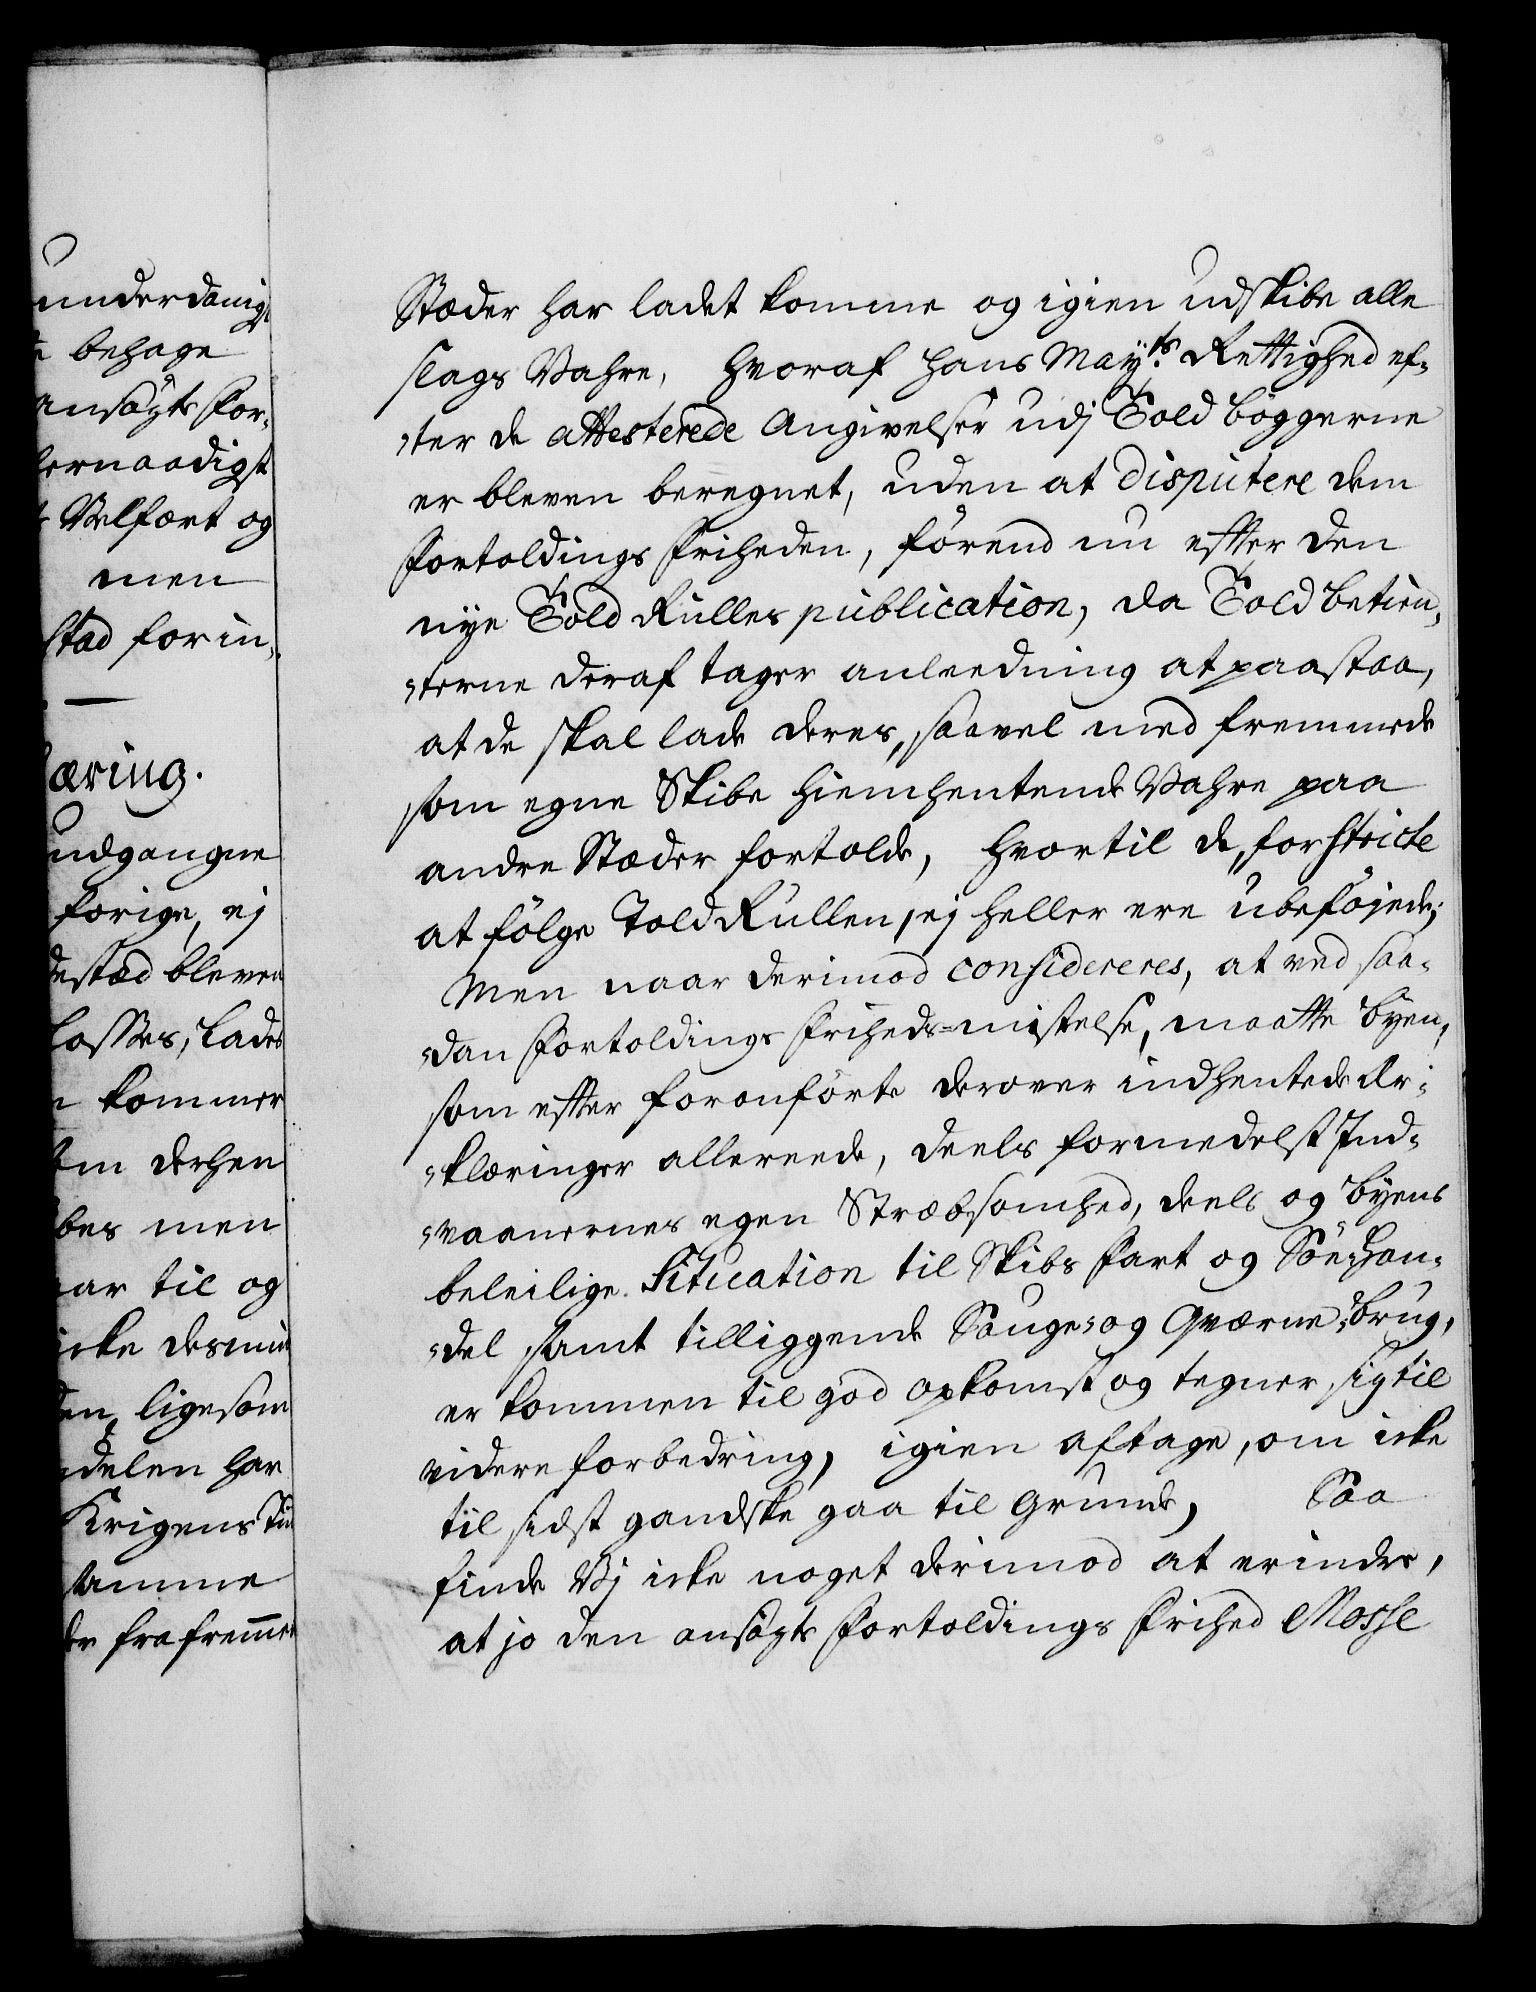 underdanigst
behage
ansögte For-
lernaadigst
Velfært og
men
stad forin-
æring.
udgangne
forige, ej
destad bleven
losses, lades
kommer
derhen
bes men
aar til og
icke desmin
en, ligesom
delen har
Krigens Tid
samme
fra fremmet
Stæder har ladet komme og igien udskibe alle
slags Vahre, hvoraf Hans Mayts. Rettighed ef-
-ter de attesterede Angivelser udj Told bøggerne
er bleven beregnet, uden at disputere dem
Fortoldings Friheden, förend nu efter den
nye Told Rulles publication, da Told betien-
-terne deraf tager anleedning at paastaa,
at de skal lade deres, saavel med fremmede
som egne Skibe hiemhentende Vahre paa
andre Stæder fortolde, hvortil de, for stricte
at fölge Told Rullen, ej heller ere ubeföjede;
Men naar derimod considereres, at ved saa-
-dan Fortoldings Friheds-mistelse, maatte byen,
som efter foranförte derover indhentede Er-
-klæringer allereede, deels formedelst Ind-
-vaanernes egen Stræbsomhed, deels og byens
beleilige Situation til Skibs Fart og Söe-Han-
-del samt tilliggende Sauge- og Qværne-brug,
er kommen til god opkomst og tegner sig til
videre forbedring, igien aftage, om icke
til sidst gandske gaa til grunde, Saa
finde Vj icke noget derimod at erindre,
at jo den ansögte Fortoldings Frihed Mosse